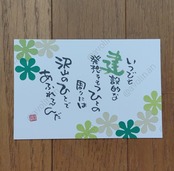 いつでも
建設的な
発想をもつひとの
周りには
沢山のひとで
あふれるんだ